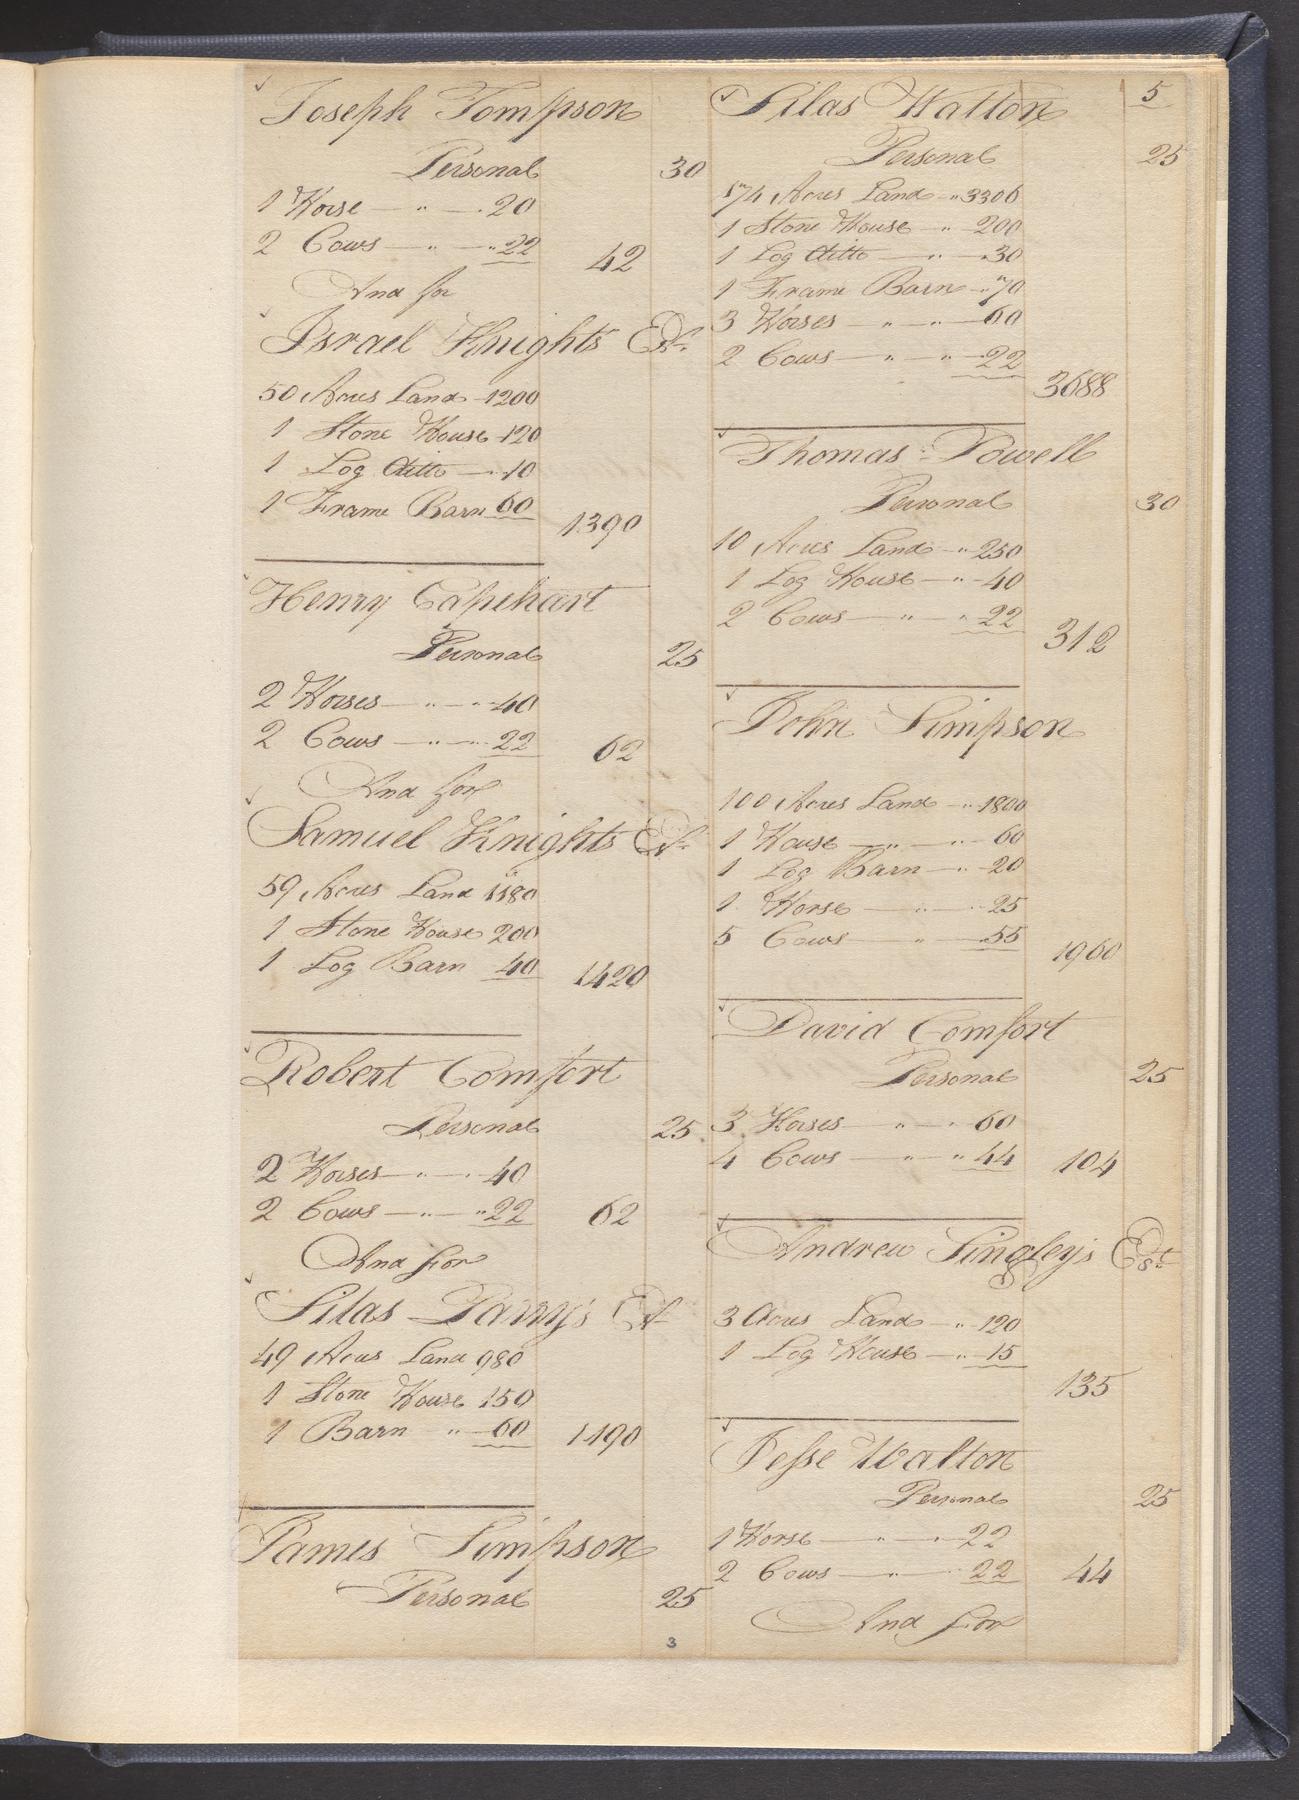 Joseph Tompson
Personal 30
1 Horse — " — 20
2 Cows — " — " 22 42
And for
Israel Knights Est.
50 Acres Land - 1200
1 Stone House - 120
1 Log Ditto — 10
1 Frame Barn 60 1390
Henry Capehart
Personal 25
2 Horses — " — " 40
2 Cows — " — " 22 62
And for
Samuel Knights Est.
59 Acres Land 1180
1 Stone House 200
1 Log Barn 40 1420
Robert Comfort
Personal 25
2 Horses — " — 40
2 Cows — " — " 22 62
And for
Silas Parry's Est
49 Acres Land 980
1 Stone House 150
1 Barn " — 60 1190
James Simpson
Personal 25
3
5
Silas Walton
Personal 25
174 Acres Land — " 3306
1 Stone House — " — 200
1 Log Ditto — " — 30
1 Frame Barn — " 70
3 Horses — " — " — 60
2 Cows — " — " — 22
3688
Thomas Powell
Personal 30
10 Acres Land — " — 250
1 Log House — " — 40
2 Cows — " — " 22
312
John Simpson
100 Acres Land — " — 1800
1 House — " — " — 60
1 Log Barn — " — 20
1 Horse — " — " 25
5 Cows — " — 55 1960
David Comfort
Personal 25
3 Horses — " — " 60
4 Cows — " — " 44 104
Andrew Singley's Est.
3 Acres Land — " — 120
1 Log House — " — 15
135
Jesse Walton
Personal 25
1 Horse — " — " — 22
2 Cows — " — 22 44
And for